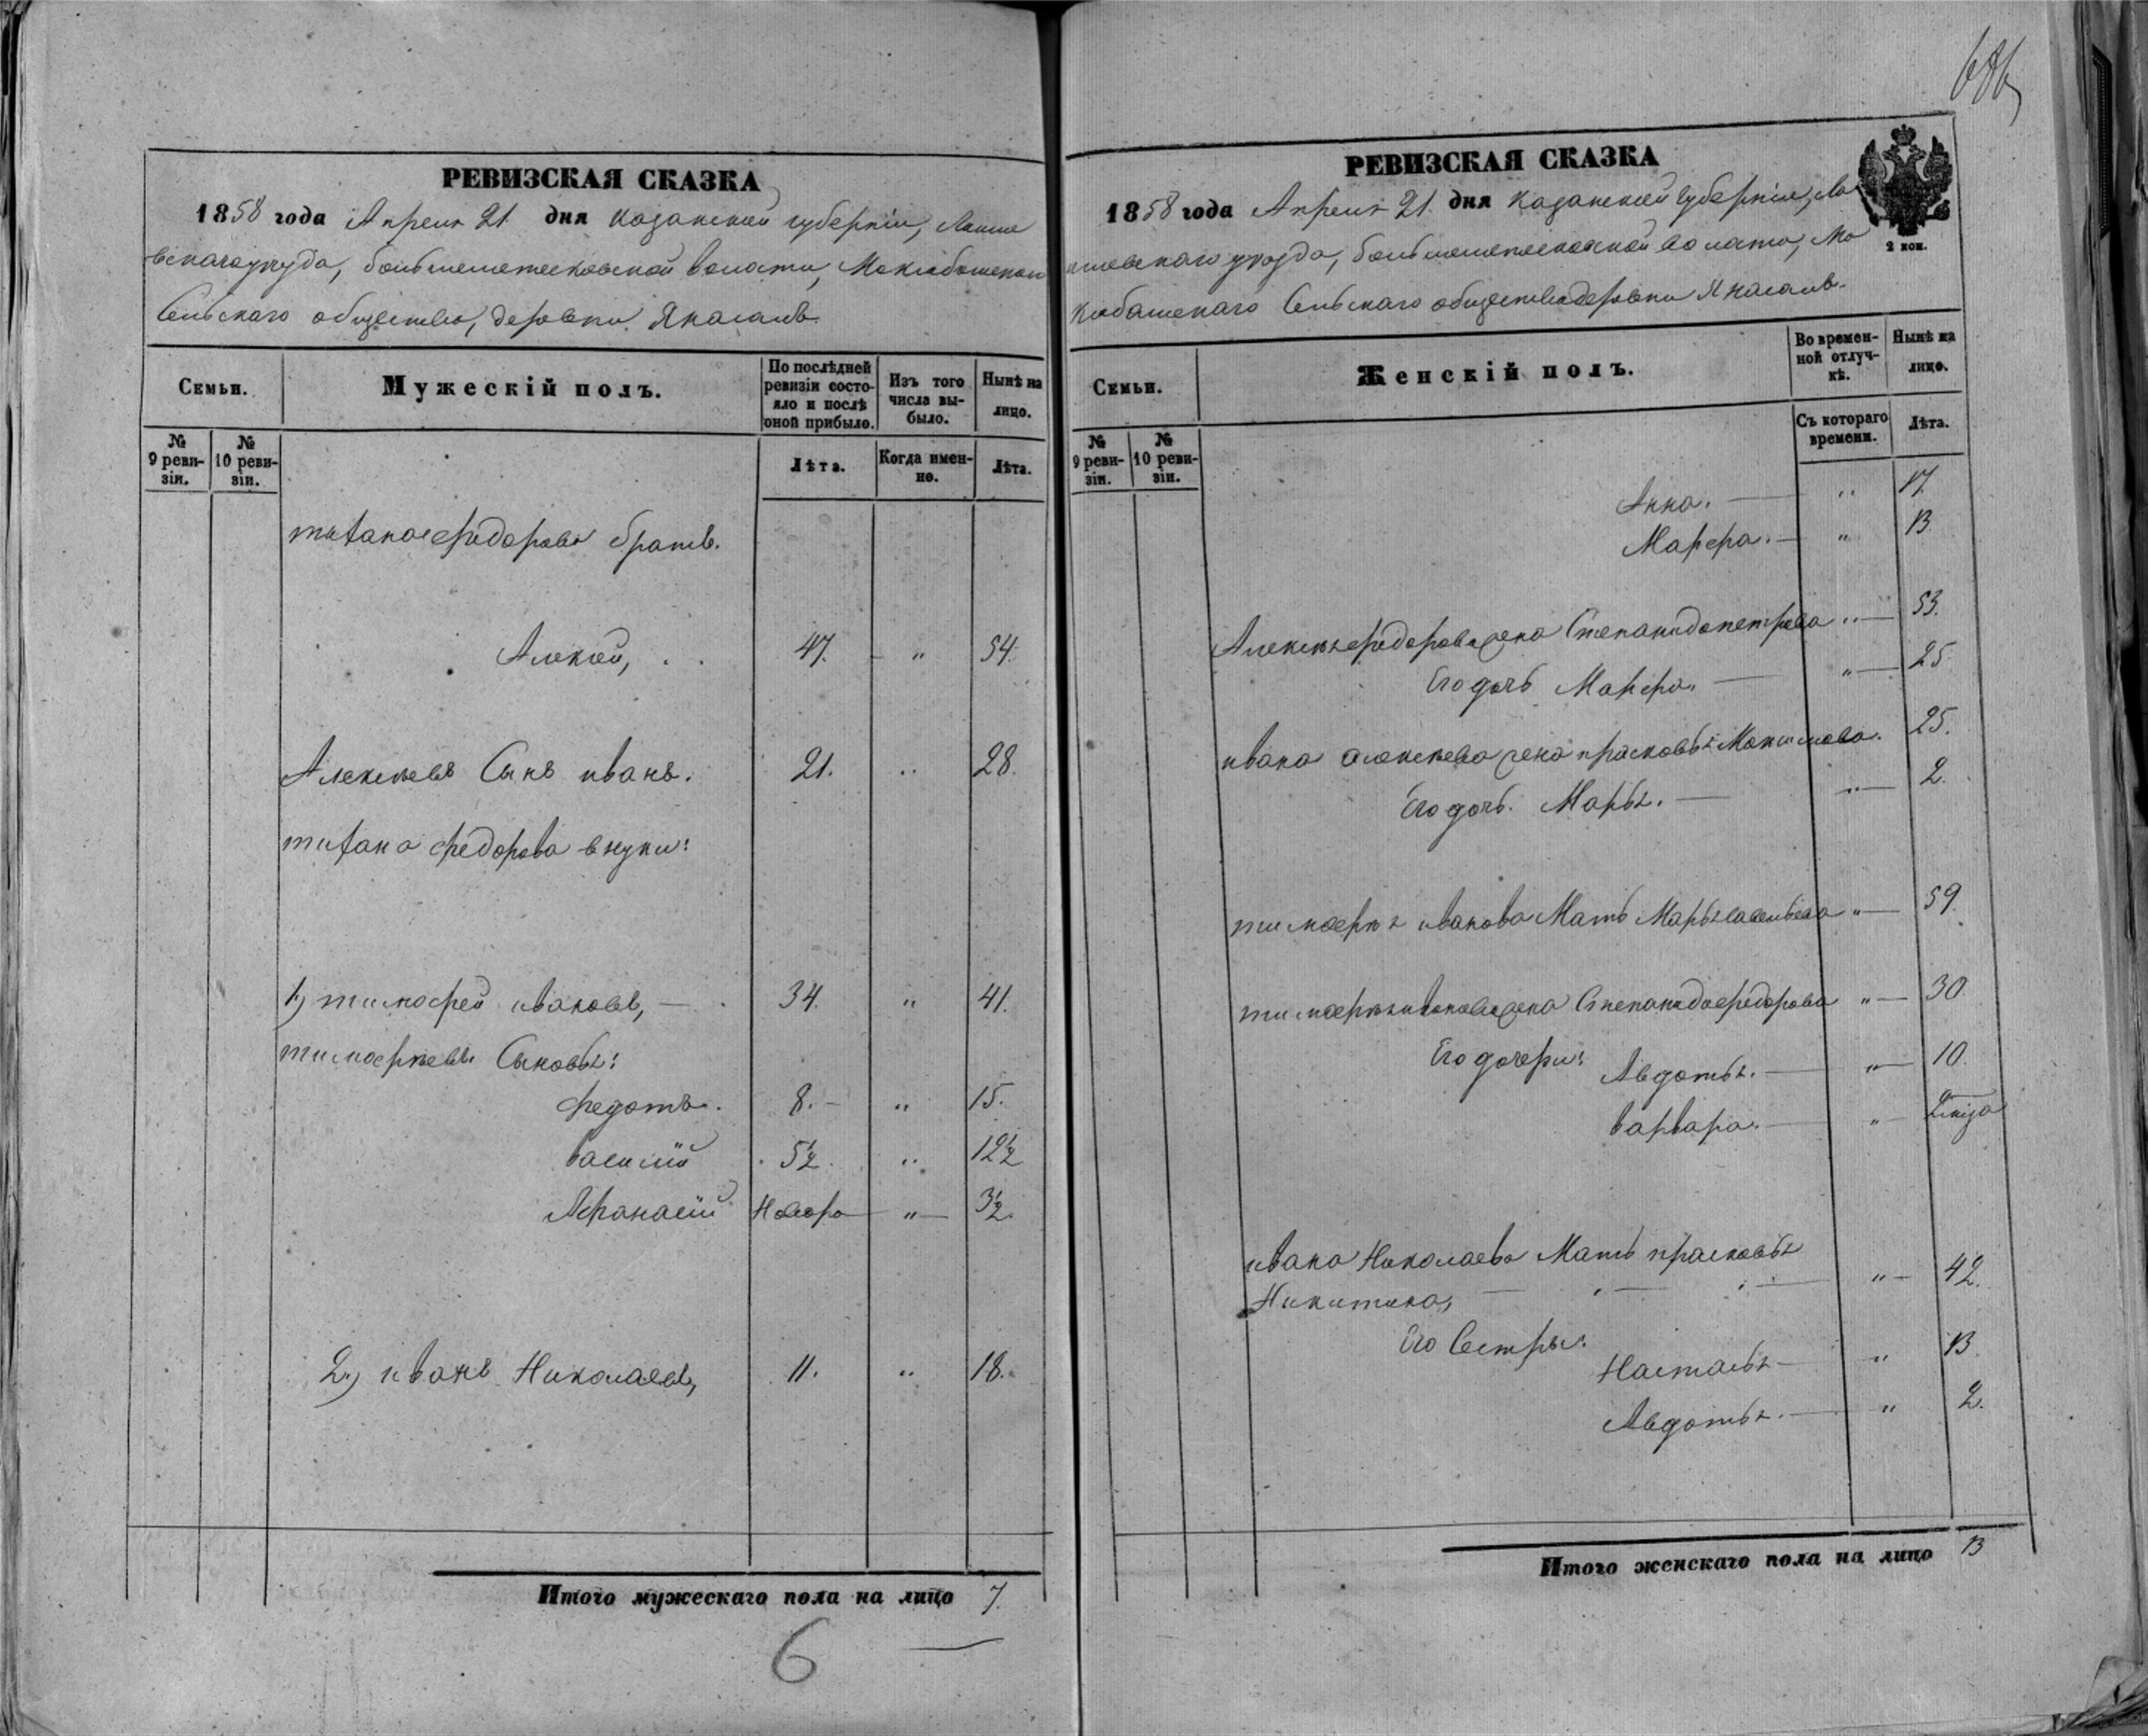 РЕВИЗСКАЯ СКАЗКА
1858 года Апреля 21 дня Казанской губернiи, Лаише
вскаго уезда, большеметесковской волости, Моклобашскаго
Сельскаго общества, деревни Янасалъ
Семьи.
Мужескiй полъ.
По послѣдней ревизiи состояло и послѣ оной прибыло.
Изъ того числа выбыло.
Нынѣ на лицо.
№ 9 ревизiи.
№ 10 ревизiи.
Лѣта.
Когда именно.
Лѣта.
федорова братъ.
Алексей, 47. " 54.
Алексѣевъ Сынъ иванъ. 21. " 28.
федорова внуки:
1, тимофей ивановъ, 34. " 41.
тимофѣевы Сыновья:
федотъ. 8. " 15.
василiй 5½. " 12½
Афанасiй новоро " 3½.
2, иванъ Николаевъ, 11. " 18.
Итого мужескаго пола на лицо 7.
6
РЕВИЗСКАЯ СКАЗКА
2 коп.
1858 года Апреля 21. дня Казанской Губернiи, Ла
ишевскаго уезда, большеметесковской волости, Мо
клобашскаго Сельскаго общества деревни Янасалъ.
Семьи.
Женскiй полъ.
Во временной отлучкѣ.
Нынѣ на лицо.
№ 9 ревизiи.
№ 10 ревизiи.
Съ котораго времени.
Лѣта.
Анна. " 17.
Марфа. " 13.
Алексѣя федорова жена Степанида петрова " 53.
Его дочь Марфа. " 25.
ивана алексѣева жена прасковья Максимова. 25.
Его дочь. Марья. " 2.
тимофѣя иванова Мать Марья савельева " 59.
тимофѣя иванова жена Степанида федорова " 30.
Его дочери: Авдотья. " 10.
варвара. "
ивана Николаева Мать прасковья
Никитина, " 42.
Его Сестры:
Настасья " 13.
Авдотья. " 2.
Итого женскаго пола на лицо 13